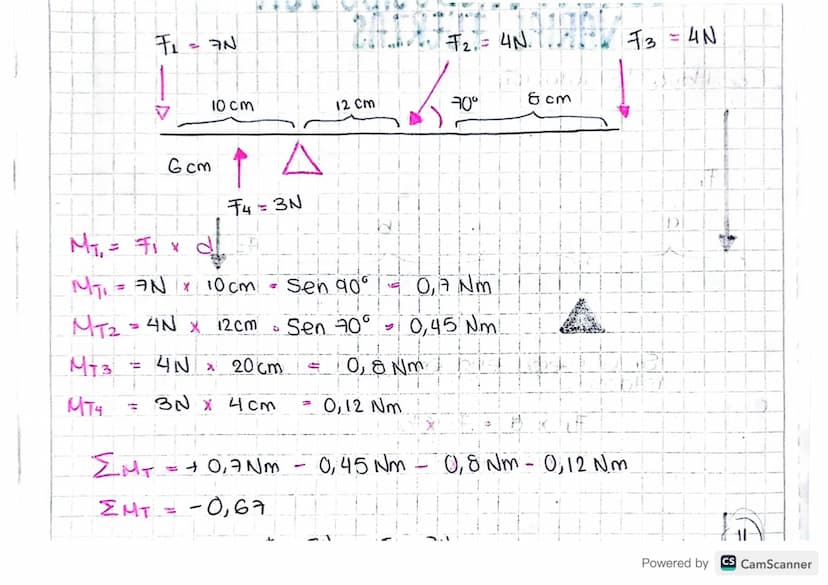 F₁ = 7N
F₂ = 4N.
F3 = 4N
10 cm
12 cm
70°
8 cm
6 cm
F4 = 3N
MT₁ = F₁ x d
MT₁ = 7N x 10cm · Sen 90° = 0,7 Nm
MT2 = 4N x 12cm · Sen 70° = 0,45 Nm
MT3 = 4N x 20cm = 0,8 Nm
MT4 = 3N x 4cm = 0,12 Nm
ΣMT = + 0,7Nm - 0,45 Nm - 0,8 Nm - 0,12 Nm
ΣMT = -0,67
11
Powered by CS CamScanner